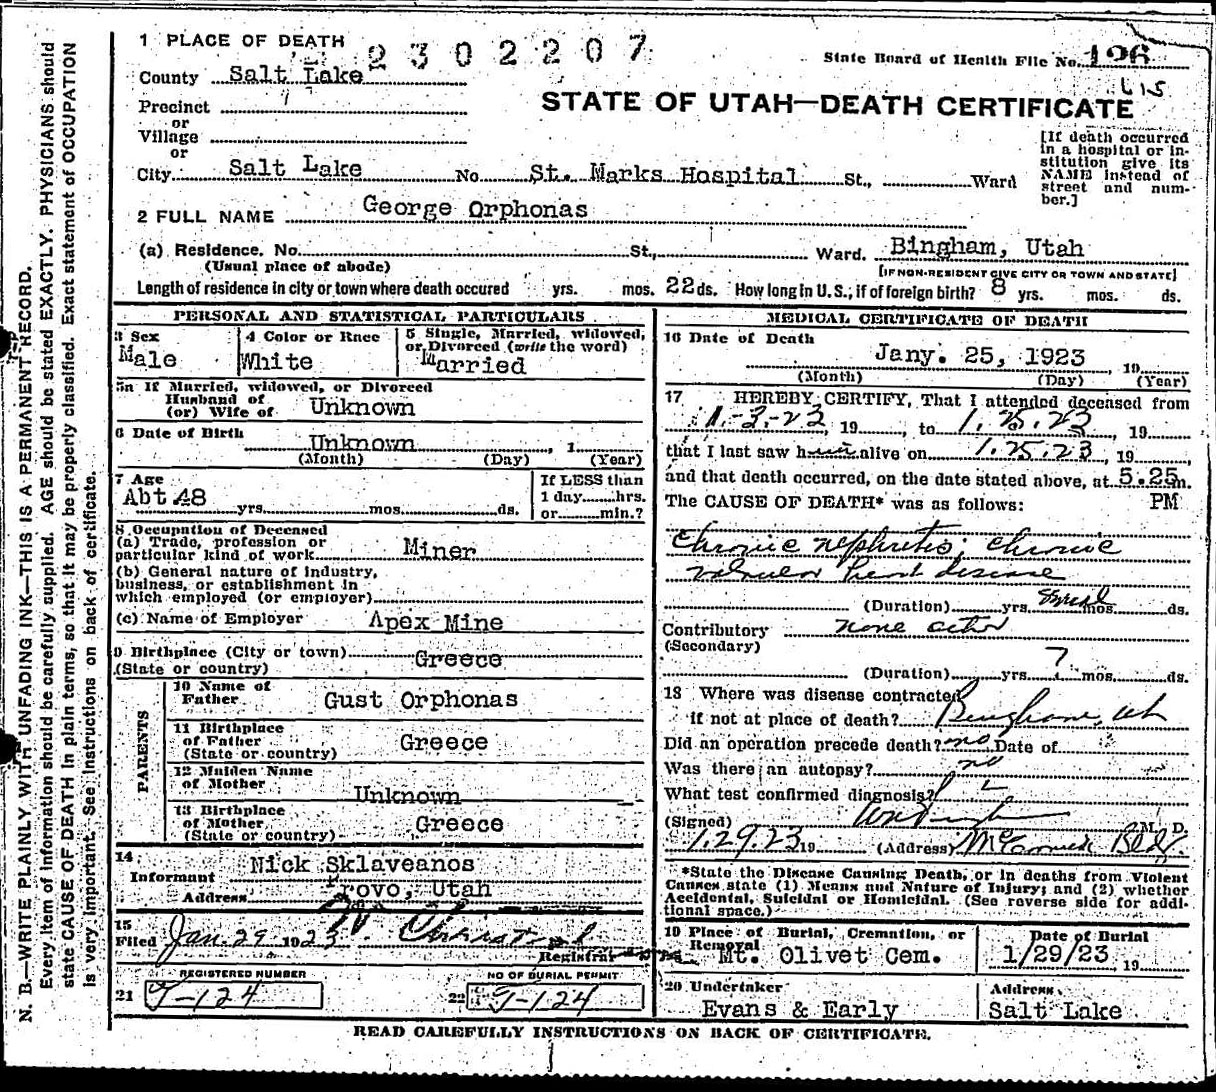 1 PLACE OF DEATH 2302207
State Board of Health File No. 126
County Salt Lake
STATE OF UTAH—DEATH CERTIFICATE
Precinct
or
Village
or
City Salt Lake No St. Marks Hospital St., Ward
[If death occurred in a hospital or institution give its NAME instead of street and number.]
2 FULL NAME George Orphonas
(a) Residence. No. St., Ward. Bingham, Utah
(Usual place of abode) [IF NON-RESIDENT GIVE CITY OR TOWN AND STATE]
Length of residence in city or town where death occured yrs. mos. 22 ds. How long in U.S., if of foreign birth? 8 yrs. mos. ds.
PERSONAL AND STATISTICAL PARTICULARS
3 Sex
Male
4 Color or Race
White
5 Single, Married, widowed, or Divorced (write the word)
Married
5a If Married, widowed, or Divorced
Husband of
(or) Wife of Unknown
6 Date of Birth Unknown , 1
(Month) (Day) (Year)
7 Age
Abt 48 yrs. mos. ds.
If LESS than
1 day hrs.
or min.?
8 Occupation of Deceased
(a) Trade, profession or
particular kind of work Miner
(b) General nature of industry,
business, or establishment in
which employed (or employer)
(c) Name of Employer Apex Mine
9 Birthplace (City or town)
(State or country) Greece
PARENTS
10 Name of
Father Gust Orphonas
11 Birthplace
of Father
(State or country) Greece
12 Maiden Name
of Mother Unknown
13 Birthplace
of Mother
(State or country) Greece
14
Informant Nick Sklaveanos
Address Provo, Utah
15
Filed Jan. 29 1923
Registrar
REGISTERED NUMBER
21 T-124
NO OF BURIAL PERMIT
22 T-124
MEDICAL CERTIFICATE OF DEATH
16 Date of Death
Jany. 25, 1923 , 19
(Month) (Day) (Year)
17 HEREBY CERTIFY, That I attended deceased from
1-3-23, 19 , to 1.25.23, 19
that I last saw him alive on 1.25.23, 19 ,
and that death occurred, on the date stated above, at 5.25 m.
The CAUSE OF DEATH* was as follows: PM
Chronic nephritis; Chronic
valvular heart disease
(Duration) yrs. mos. ds.
Contributory none
(Secondary)
(Duration) yrs. mos. ds.
18 Where was disease contracted
if not at place of death? Bingham, Ut
Did an operation precede death? no Date of
Was there an autopsy? no
What test confirmed diagnosis?
(Signed) M. D.
1.29.23 19 (Address) McCornick Bldg.
*State the Disease Causing Death, or in deaths from Violent
Causes state (1) Means and Nature of Injury; and (2) whether
Accidental, Suicidal or Homicidal. (See reverse side for addi-
tional space.)
19 Place of Burial, Cremation, or
Removal Mt. Olivet Cem.
Date of Burial
1/29/23 , 19
20 Undertaker
Evans & Early
Address
Salt Lake
READ CAREFULLY INSTRUCTIONS ON BACK OF CERTIFICATE.
N. B.—WRITE PLAINLY WITH UNFADING INK—THIS IS A PERMANENT RECORD.
Every item of information should be carefully supplied. AGE should be stated EXACTLY. PHYSICIANS should
state CAUSE OF DEATH in plain terms, so that it may be properly classified. Exact statement of OCCUPATION
is very important. See Instructions on back of certificate.